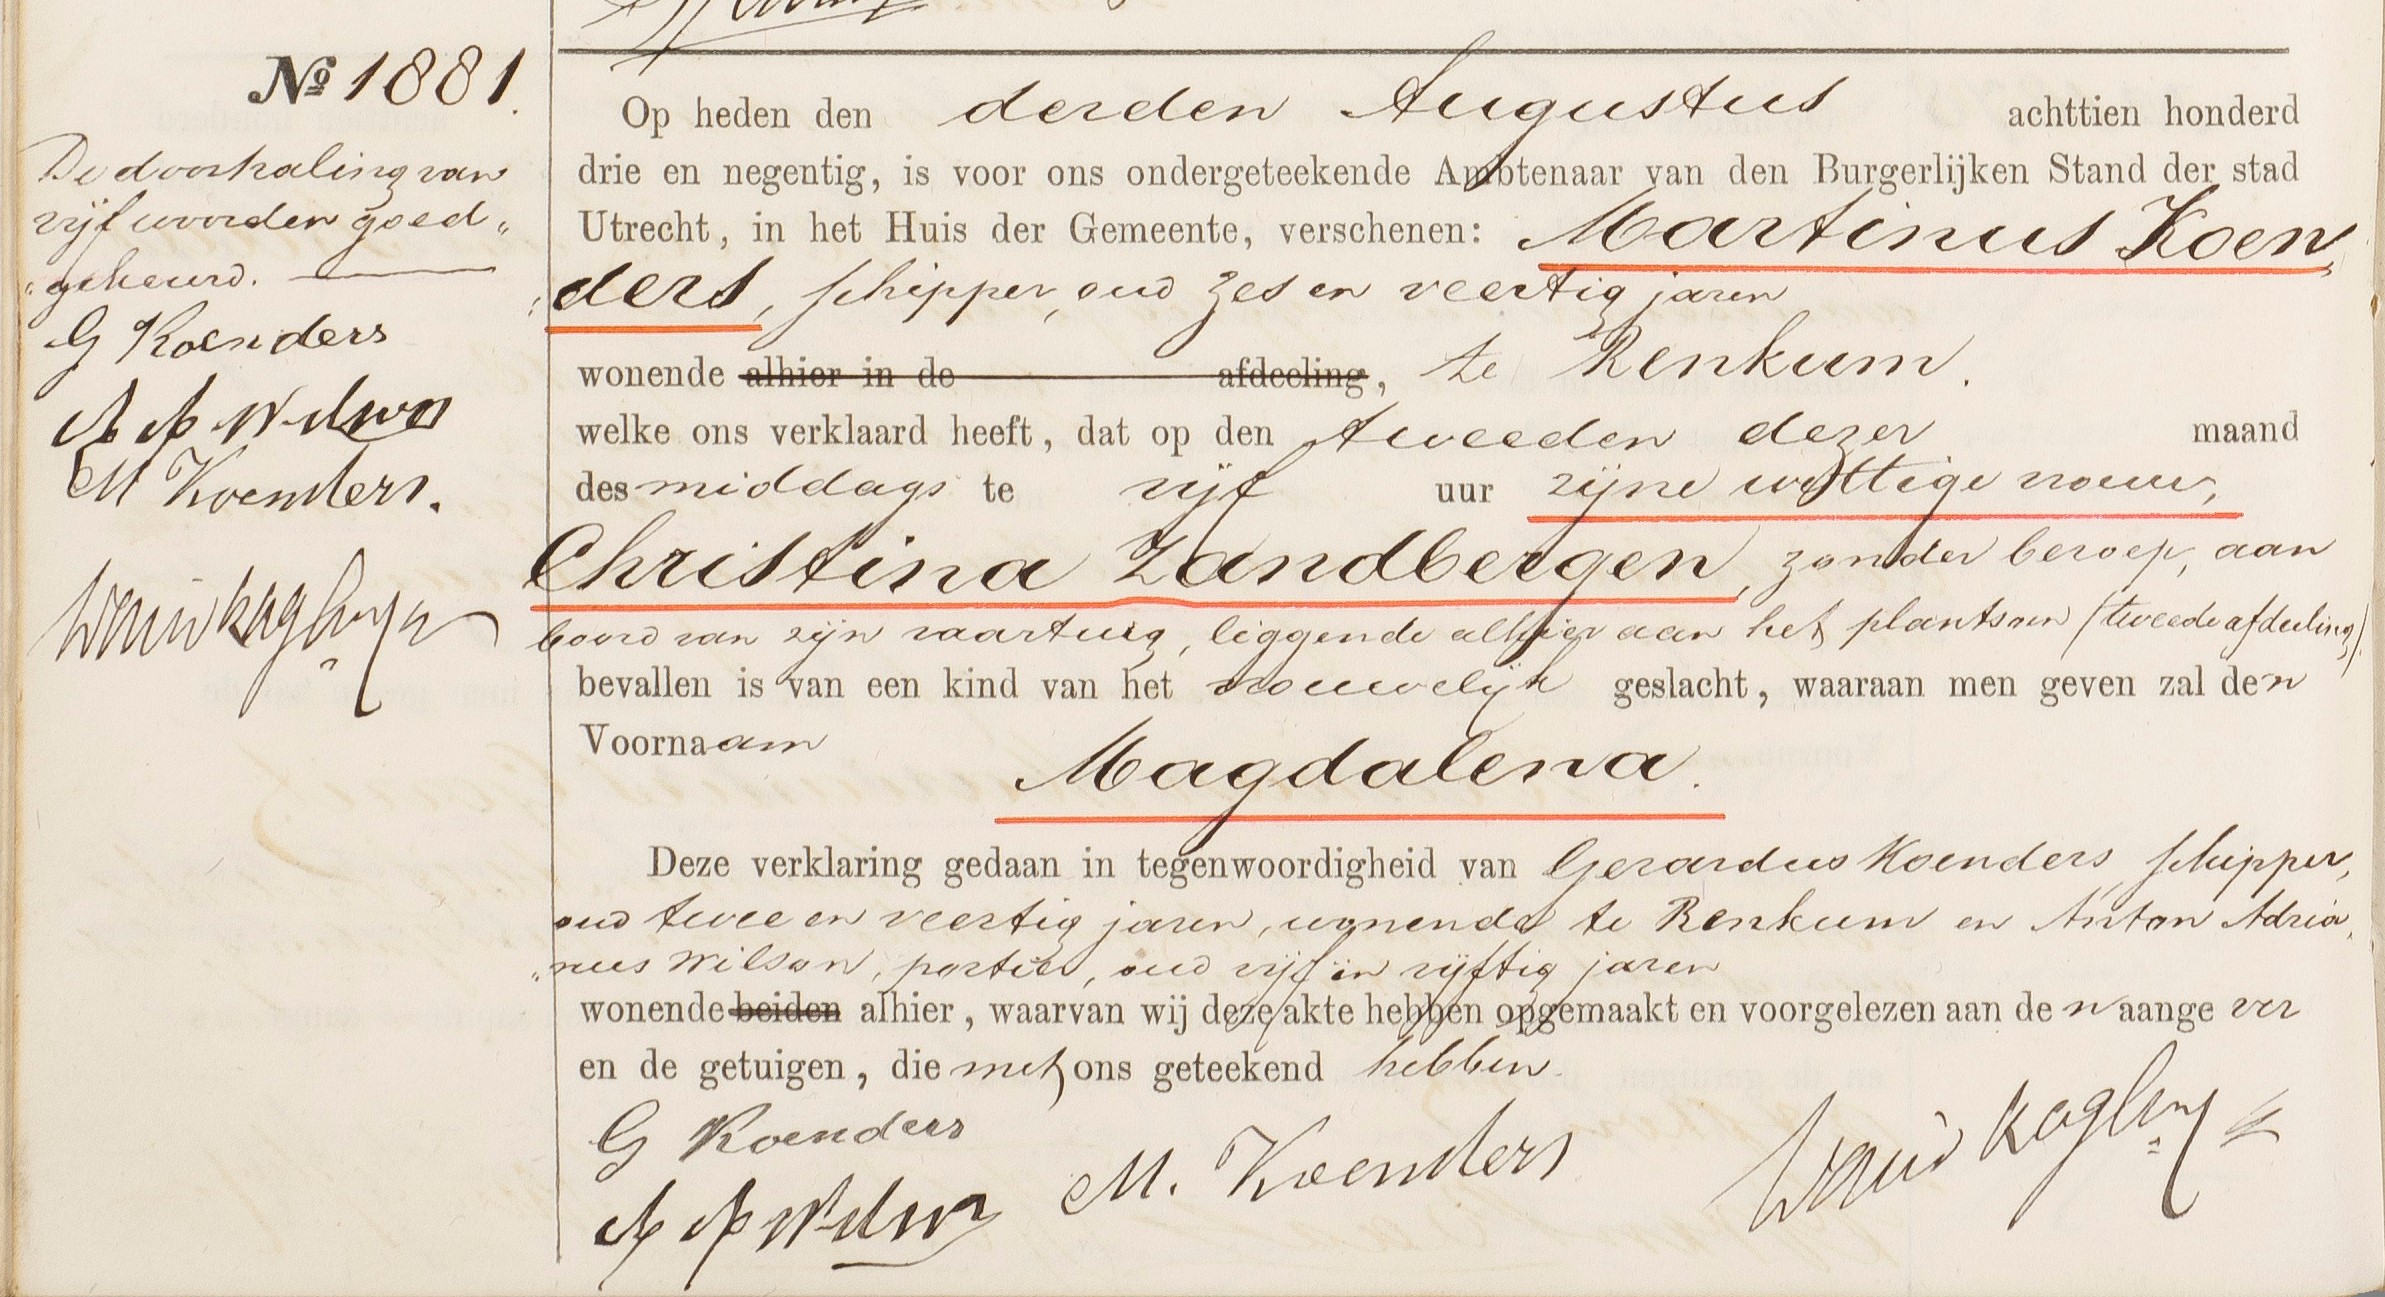 Nº 1881.
De doorhaling van
vijf woorden goed„
„gekeurd.
G Koenders
A A Wilson
M Koenders.
Op heden den derden Augustus achttien honderd
drie en negentig, is voor ons ondergeteekende Ambtenaar van den Burgerlijken Stand der stad
Utrecht, in het Huis der Gemeente, verschenen: Martinus Koen„
„ders, schipper, oud zes en veertig jaren
wonende alhier in de afdeeling, te Renkum.
welke ons verklaard heeft, dat op den tweeden dezer maand
des middags te vijf uur zijne wettige vrouw,
Christina Zandbergen, zonder beroep, aan
boord van zijn vaartuig, liggende alhier aan het plantsoen (tweede afdeeling).
bevallen is van een kind van het vrouwelijk geslacht, waaraan men geven zal den
Voornaam
Magdalena.
Deze verklaring gedaan in tegenwoordigheid van Gerardus Koenders, schipper,
oud twee en veertig jaren, wonende te Renkum en Anton Adria„
„nus Wilson, portier, oud vijf en vijftig jaren
wonende beiden alhier, waarvan wij deze akte hebben opgemaakt en voorgelezen aan den aangever
en de getuigen, die met ons geteekend hebben.
G Koenders
A A Wilson
M. Koenders